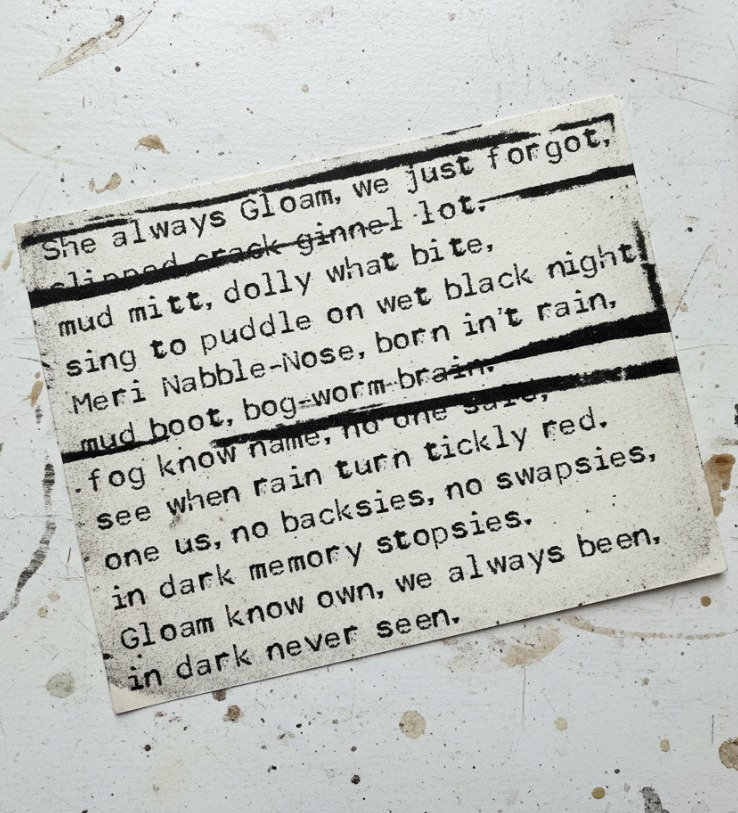 She always Gloam, we just forgot,
slipped crack ginnel lot.
mud mitt, dolly what bite,
sing to puddle on wet black night
Meri Nabble-Nose, born in't rain,
mud boot, bog-worm brain.
fog know name, no one said,
see when rain turn tickly red.
one us, no backsies, no swapsies,
in dark memory stopsies.
Gloam know own, we always been,
in dark never seen.